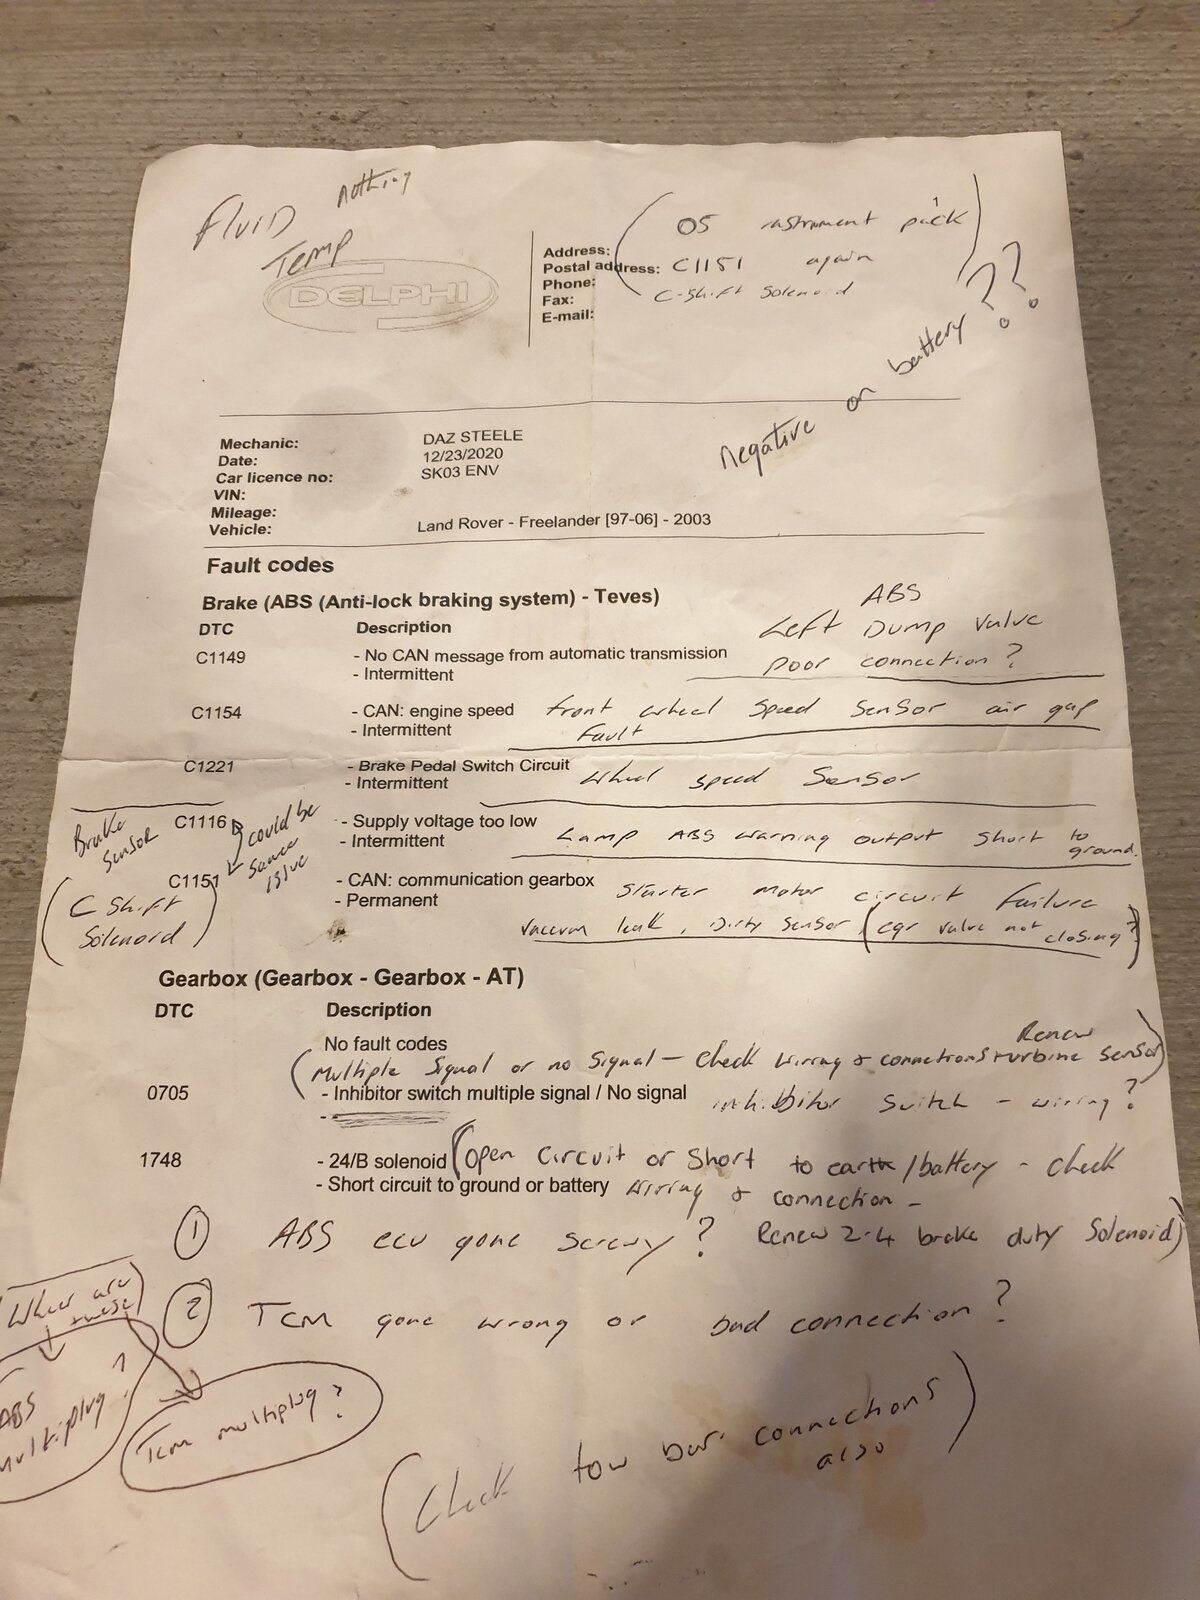 Fluid
nothing
Temp
DELPHI
Address:
Postal address:
Phone:
Fax:
E-mail:
( 05 instrument pack )
C1151 again
C-Shift Solenoid
negative on battery ??
Mechanic: DAZ STEELE
Date: 12/23/2020
Car licence no: SK03 ENV
VIN:
Mileage:
Vehicle: Land Rover - Freelander [97-06] - 2003
Fault codes
Brake (ABS (Anti-lock braking system) - Teves)
ABS
DTC Description Left Dump Valve
C1149 - No CAN message from automatic transmission poor connection?
- Intermittent
C1154 - CAN: engine speed front wheel Speed Sensor air gap
- Intermittent fault
C1221 - Brake Pedal Switch Circuit wheel speed Sensor
- Intermittent
Brake Sensor
C1116 - Supply voltage too low
could be same issue
- Intermittent Lamp ABS warning output short to ground.
C1151 - CAN: communication gearbox Starter motor circuit failure
- Permanent
(C Shift Solenord)
vaccum leak, Dirty Sensor (egr valve not closing?)
Gearbox (Gearbox - Gearbox - AT)
DTC Description
No fault codes Renew
(Multiple Signal or no Signal - Check wiring & connections turbine Sensor)
0705 - Inhibitor switch multiple signal / No signal inhibitor Switch - wiring?
-
1748 - 24/B solenoid (Open Circuit or Short to earth/battery - Check
- Short circuit to ground or battery wiring & connection -
① ABS ecu gone screwy? Renew 2-4 brake duty Solenoid)
(Wher are these)
② Tcm gone wrong or bad connection?
ABS multiplug?
Tcm multiplug?
(Check tow bar connections also)